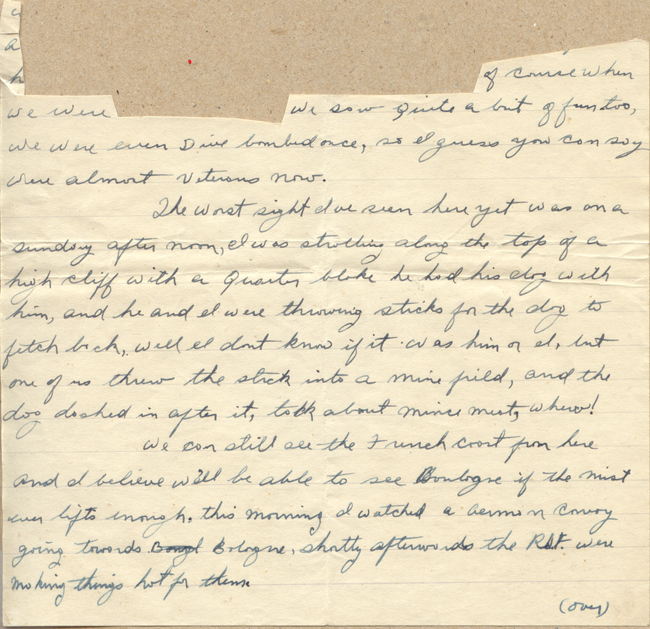 of course when
we were we saw quite a bit of fun too,
we were even Dive bombed once, so I guess you can say
were almost Veterans now.
The worst sight I've seen here yet was on a
sunday after noon, I was strolling along the top of a
high cliff with a Quarter bloke he had his dog with
him, and he and I were throwing sticks for the dog to
fetch back, well I dont know if it was him or I, but
one of us threw the stick into a mine field, and the
dog dashed in after it, talk about mince meat, whew!
We can still see the French coast from here
and I believe we'll be able to see Boulogne if the mist
ever lifts enough. this morning I watched a German Convoy
going towards Bologne, shortly afterwards the RAF. were
making things hot for them.
(over)